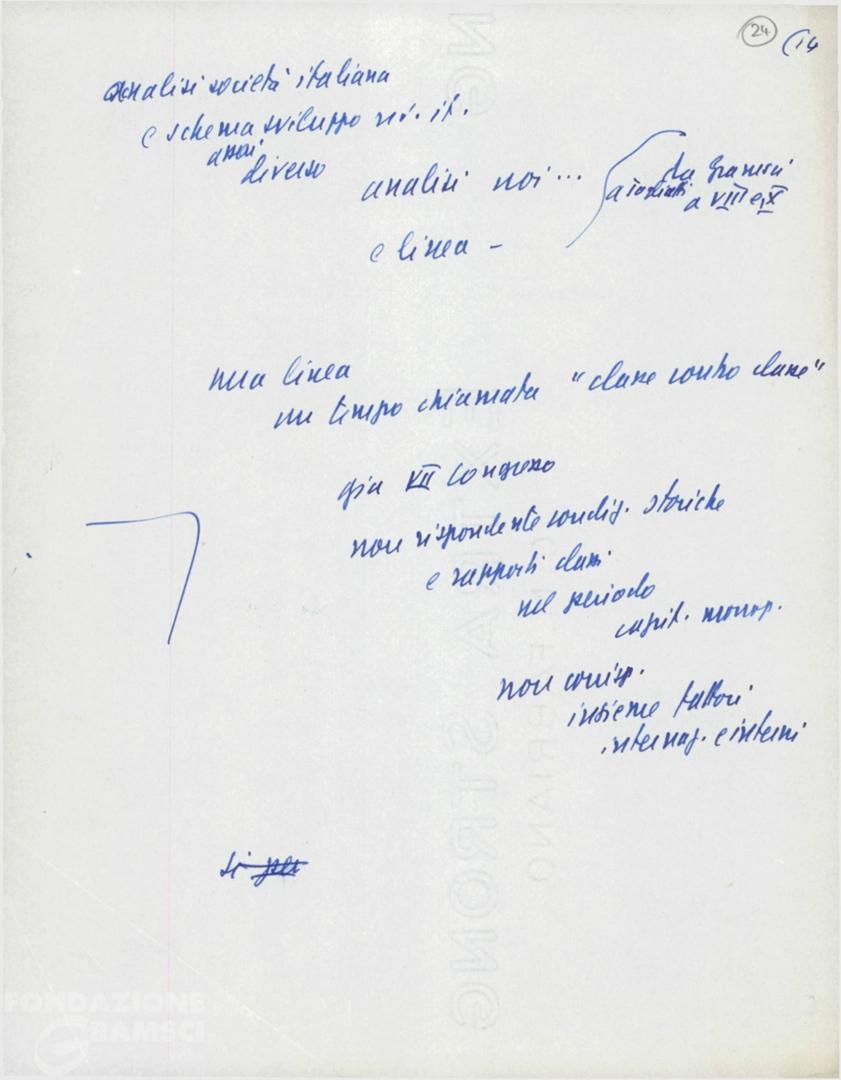 24
(14
analisi società italiana
e schema sviluppo riv. it.
assai
diverso
analisi noi...
da Gramsci
a Togliatti
a VIII e IX
e linea -
una linea
un tempo chiamata "classe contro classe"
già VII Congresso
non rispondente condiz. storiche
e rapporti classi
nel periodo
capit. monop.
non corrisp.
insieme fattori
internaz. e interni
si per
EXTRA STRONG
FABRIANO
FONDAZIONE
GRAMSCI